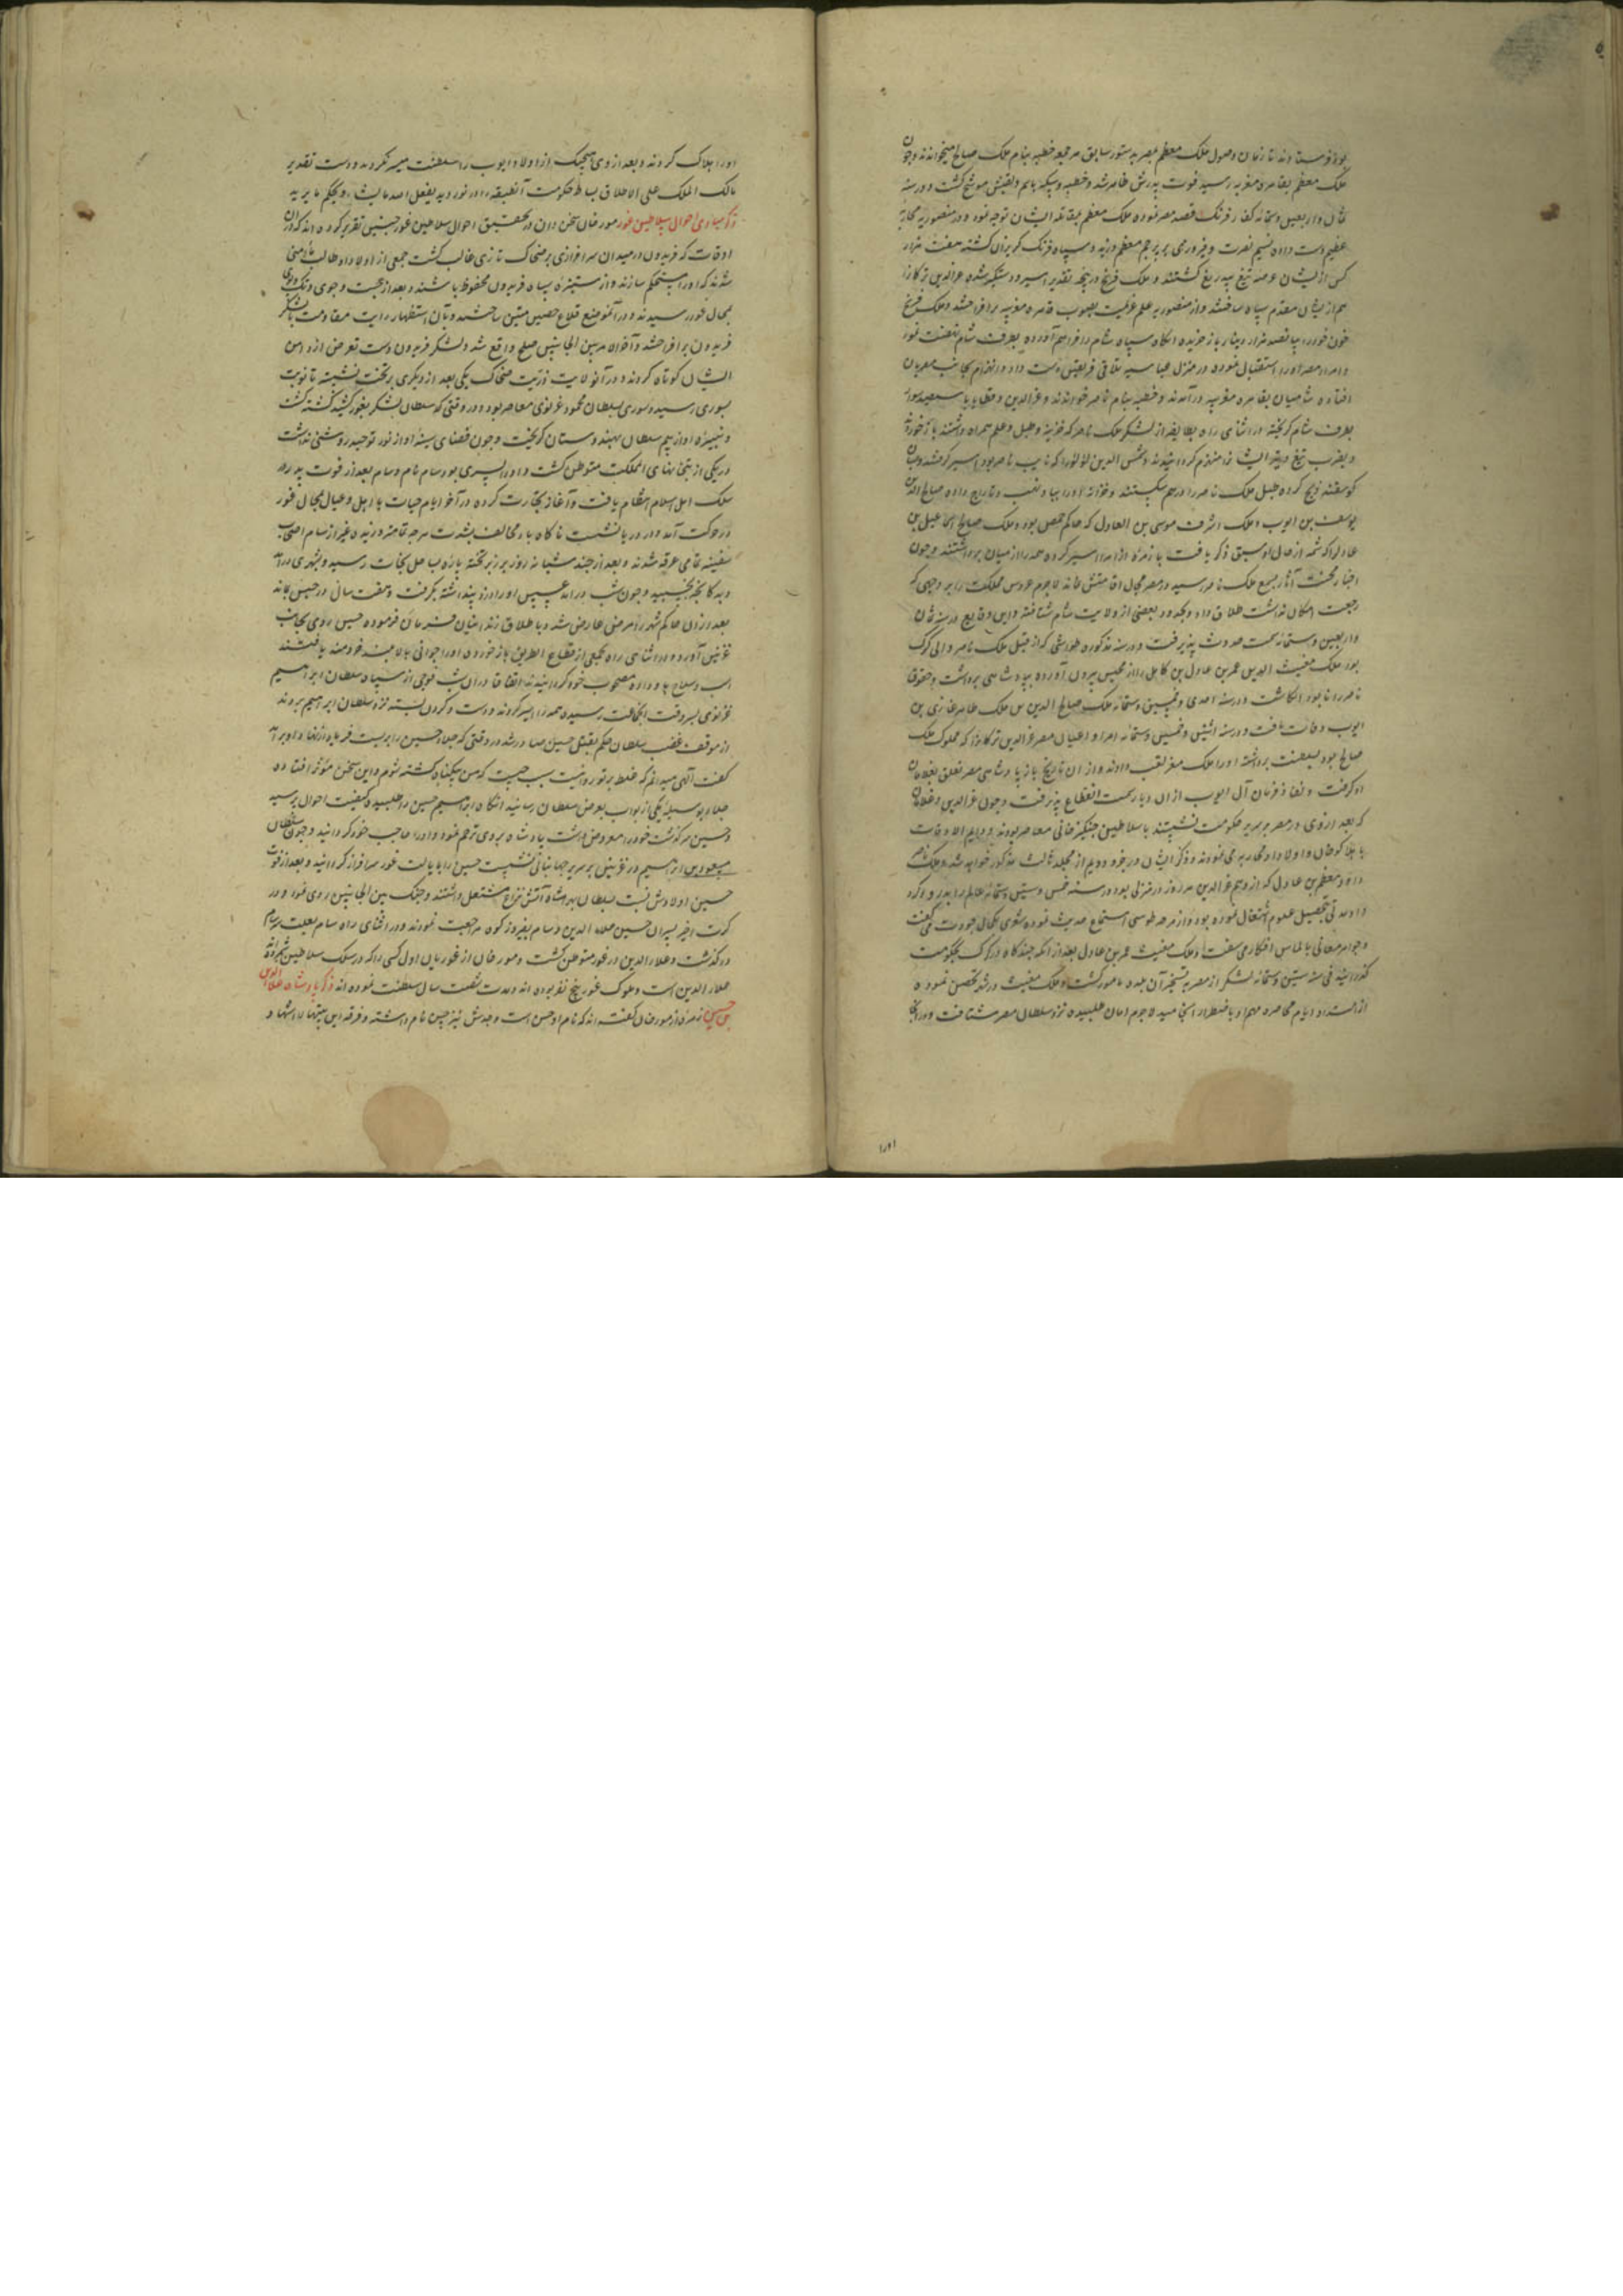 بود فرستادند تا زمان وصول ملک معظم بمصر بدستور سابق هر جمعه خطبه بنام ملک صالح میخواندند و چون
ملک معظم بقاهره معزیه رسید فوت پدرش ظاهر شد و خطبه و سکه باسم و لقبش موشح گشت و در سنه
ثمان و اربعین و ستمائه کفار فرنگ قصد مصر نموده ملک معظم بمقابله ایشان توجه نمود و در منصوریه محاربه
عظیم دست داده نسیم نصرت و فیروزی بر پرچم معظم وزید و سپاه فرنگ گریزان گشته هفت هزار
کس از ایشان عرضه تیغ بیدریغ گشتند و ملک فرنج در پنجه تقدیر اسیر و دستگیر شده عزالدین ترکمانرا
هم از ایشان مقدم سپاه ساختند و از منصوریه علم عزیمت بصوب قاهره معزیه برافراختند و ملک فرنج
خون خود را بپانصد هزار دینار باز خرید انگاه سپاه شام را فراهم آورده بطرف شام نهضت نمود
و امراء مصر او را استقبال نموده در منزل عباسیه تلاقی فریقین دست داد و انهزام بجانب مصریان
افتاده شامیان بقاهره معزیه درآمدند و خطبه بنام ناصر خواندند و عزالدین و قطایا با سیصد سوار
بطرف شام گریخته در اثنای راه بطایفه از لشکر ملک ناصر که خزینه و طبل و علم همراه داشتند باز خورده
و بضرب تیغ ایشانرا منهزم گردانیدند و شمس الدین لؤلؤ را که نایب ناصر بود اسیر گرفتند و بسان
گوسفند ذبح کرده طبل ملک ناصر را درهم شکستند و خزانه او را بباد نهب و تاراج داده صالح الدین
یوسف بن ایوب و ملک اشرف موسی بن العادل که حاکم حمص بود و ملک صالح اسماعیل بن
عادل را که شمه از حال او سبق ذکر یافت با زمره از امرا اسیر کرده همه را از میان برداشتند و چون
اخبار بسمع ملک ناصر رسید در مصر مجال اقامتش نماند لاجرم عروس مملکت را بر وجهی که
رجعت امکان نداشت طلاق داد و بعضی از ولایت شام شتافته و این وقایع در سنه ثمان
و اربعین و ستمائه سمت حدوث پذیرفت و در سنه مذکوره طواشی که از قبل ملک ناصر والی کرک
بود ملک مغیث الدین عمر بن عادل بن کامل را از محبس بیرون آورده بپادشاهی برداشت و حقوق
ناصر را نابود انگاشت و در سنه احدی و خمسین و ستمائه ملک صالح الدین بن ملک ظاهر غازی بن
ایوب وفات یافت و در سنه اثنین و خمسین و ستمائه امرا و اعیان مصر عزالدین ترکمانرا که مملوک ملک
صالح بود بسلطنت برداشته او را ملک معز لقب دادند و از ان تاریخ باز پادشاهی مصر تعلق بغلامان
او گرفت و نفاذ فرمان آل ایوب از ان دیار سمت انقطاع پذیرفت و چون عزالدین و غلامان
که بعد از وی در مصر بر سریر حکومت نشستند با سلاطین چنگیزخانی معاصر بودند و دایم الاوقات
با هلاکوخان و اولاد او محاربه می نمودند و ذکر ایشان در جزو دویم از مجلد ثالث مذکور خواهد شد و ملک ناصر
داود معظم بن عادل که از وهم عزالدین هر روز در منزلی بود در سنه خمس و ستین و ستمائه عالم را بدرود کرد
داود بتحصیل علوم اشتغال نموده بود و از مرید طوسی استماع حدیث نموده شعری بکمال جودت میگفت
و جواهر معانی بالماس افکار می سفت و ملک مغیث عمر بن عادل بعد از انکه چند گاه در کرک بحکومت
گذرانید فی سنه ستین و ستمائه لشکر از مصر به تسخیر آن بلده مامور گشت و ملک مغیث در شهر تحصن نموده
از امتداد ایام محاصره مهم او باضطرار انجامید لاجرم امان طلبیده نزد سلطان مصر شتافت و در انجا
او را
او را هلاک کردند و بعد از وی هیچیک از اولاد ایوب را سلطنت میسر نگردید و دست تقدیر
مالک الملک علی الاطلاق بساط حکومت آنطبقه را در نوردید یفعل الله ما یشاء و یحکم ما یرید
ذکر مبادی احوال سلاطین غور مورخان سخن دان در تحقیق احوال سلاطین غور چنین تقریر کرده اند که در ان
اوقات که فریدون در میدان سرافرازی بر ضحاک تازی غالب گشت جمعی از اولاد او طالب مأمنی
شدند که او را مستحکم سازند و از ستیزه سپاه فریدون محفوظ باشند و بعد از جست و جوی و تک و پوی
بجبال غور رسیدند و در آنموضع قلاع حصین متین ساختند و بآن استظهار رایت مقاومت با لشکر
فریدون برافراختند و آخر الامر بین الجانبین صلح واقع شد و لشکر فریدون دست تعرض از دامن
ایشان کوتاه کردند و در آنولایت ذریت ضحاک یکی بعد از دیگری بر تخت نشستند تا نوبت
بسوری رسید و سوری بسلطان محمود غزنوی معاصر بود و در وقتی که سلطان لشکر بغور کشید کشته گشت
و نبیره او از بیم سلطان بهندوستان گریخت و چون فضای سینه او از نور توحید روشنی نداشت
در یکی از بتخانهای المملکت متوطن گشت و او را پسری بود سام نام و سام بعد از فوت پدر در
سلک اهل اسلام انتظام یافت و آغاز تجارت کرده در آخر ایام حیات با اهل و عیال بجبال غور
در حرکت آمد و در دریا نشست ناگاه باد مخالف بشدت هرچه تمامتر وزیده غیر از سام اصحاب
سفینه تمامی غرقه شدند و بعد از چند شبانه روز بر زبر تخته پاره بساحل نجات رسید و بشهری درآمد
و بدکانچه بخسبید و چون شب درآمد عسس او را دزد پنداشته بگرفت و هفت سال در حبس بماند
بعد از ان حاکم شهر را مرضی عارض شد و باطلاق زندانیان فرمان فرموده حسین روی بجانب
غزنین آورد و در اثنای راه بجمعی از قطاع الطریق باز خورد و او را جوانی بالا بلند خردمند یافتند
اسب و سلاح باو داده مصحوب خود گردانیدند اتفاقا در ان شب فوجی از سپاه سلطان ابراهیم
غزنوی بسر وقت انجماعت رسیده همه را اسیر کردند و دست و گردن بسته نزد سلطان ابراهیم بردند
از موقف غضب سلطان حکم بقتل حسین صادر شد در وقتی که جلاد حسین را بربست فریاد از نهاد او برآمد
گفت الهی میدانم که غلط بر تو روا نیست سبب چیست که من بیگناه کشته شوم و این سخن مؤثر افتاده
جلاد بوسیله یکی از نواب بعرض سلطان رسانید انگاه ابراهیم حسین را طلبیده کیفیت احوال پرسید
و حسین سرگذشت خود را معروض داشت پادشاه بروی ترحم نمود و او را حاجب خود گردانید و چون سلطان
مسعود بن ابراهیم در غزنین بر سریر جهانبانی نشست حسین را بایالت غور سرافراز گردانید و بعد از فوت
حسین اولادش نسبت بسلطان بهرامشاه آتش نزاع مشتعل داشتند و جنگ بین الجانبین روی نمود و در
کرت اخیر پسران حسین علاء الدین و سام بفیروزکوه مراجعت نمودند و در اثنای راه سام بعلت برسام
درگذشت و علاء الدین در غور متوطن گشت و مورخان از غوریان اول کسی را که در سلک سلاطین شمرده اند
علاء الدین است و ملوک غور پنج نفر بوده اند و مدت شصت سال سلطنت نموده اند ذکر پادشاه علاءالدین
بن حسین زمره از مورخان گفته اند که نام او حسن است و جدش نیز حسین نام داشته و فرقه این بیتها را